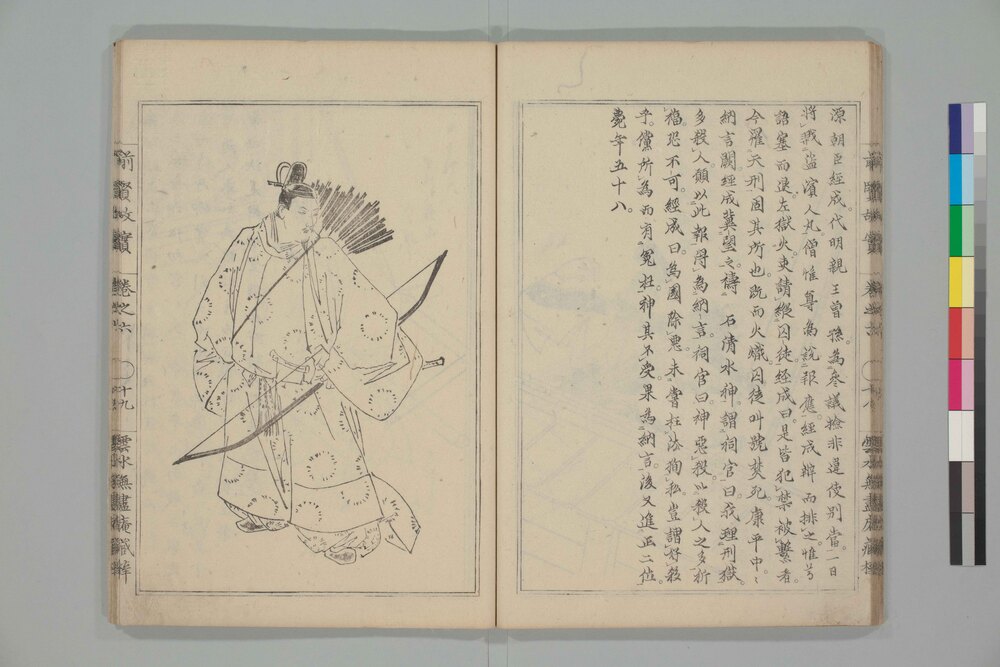 源朝臣經成。代明親王曾孫。為參議撿非違使別當。一日
將戮盗。濱人丸僧惟尊為説報應。經成辯而排之。惟尊
語塞而退。左獄火。吏請縱囚徒。經成曰。是皆犯禁被繋者。
今罹天刑。固其所也。既而火熾。囚徒叫號焚死。康平中。
納言闕。經成冀望之。禱石清水神。謂祠官曰。我理刑獄。
多殺人。願以此報。得為納言。祠官曰。神惡殺。以殺人之多祈
福。恐不可。經成曰。為國除惡。未嘗枉法徇私。豈謂好殺
乎。儻所為而有冤枉。神其不受。果為納言。後又進正二位。
薨年五十八。
前賢故實
卷之六
十八
雲水無盡庵藏梓
前賢故實
卷之六
十九
雲水無盡庵藏梓